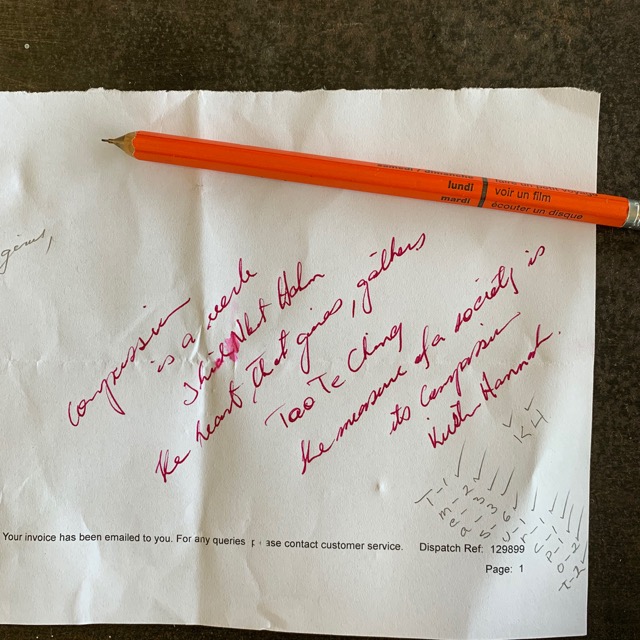 lundi voir un film
mardi écouter un disque
gives,
compassion
is a verb
Thich Nhat Hahn
the heart, that gives, gathers
Tao Te Ching
the measure of a society is
its compassion
Kristin Hannah.
K4
T-1
m-2
e-3
a-3
s-6
u-1
r-1
c-1
p-1
o-2
Your invoice has been emailed to you. For any queries please contact customer service. Dispatch Ref: 129899
Page: 1